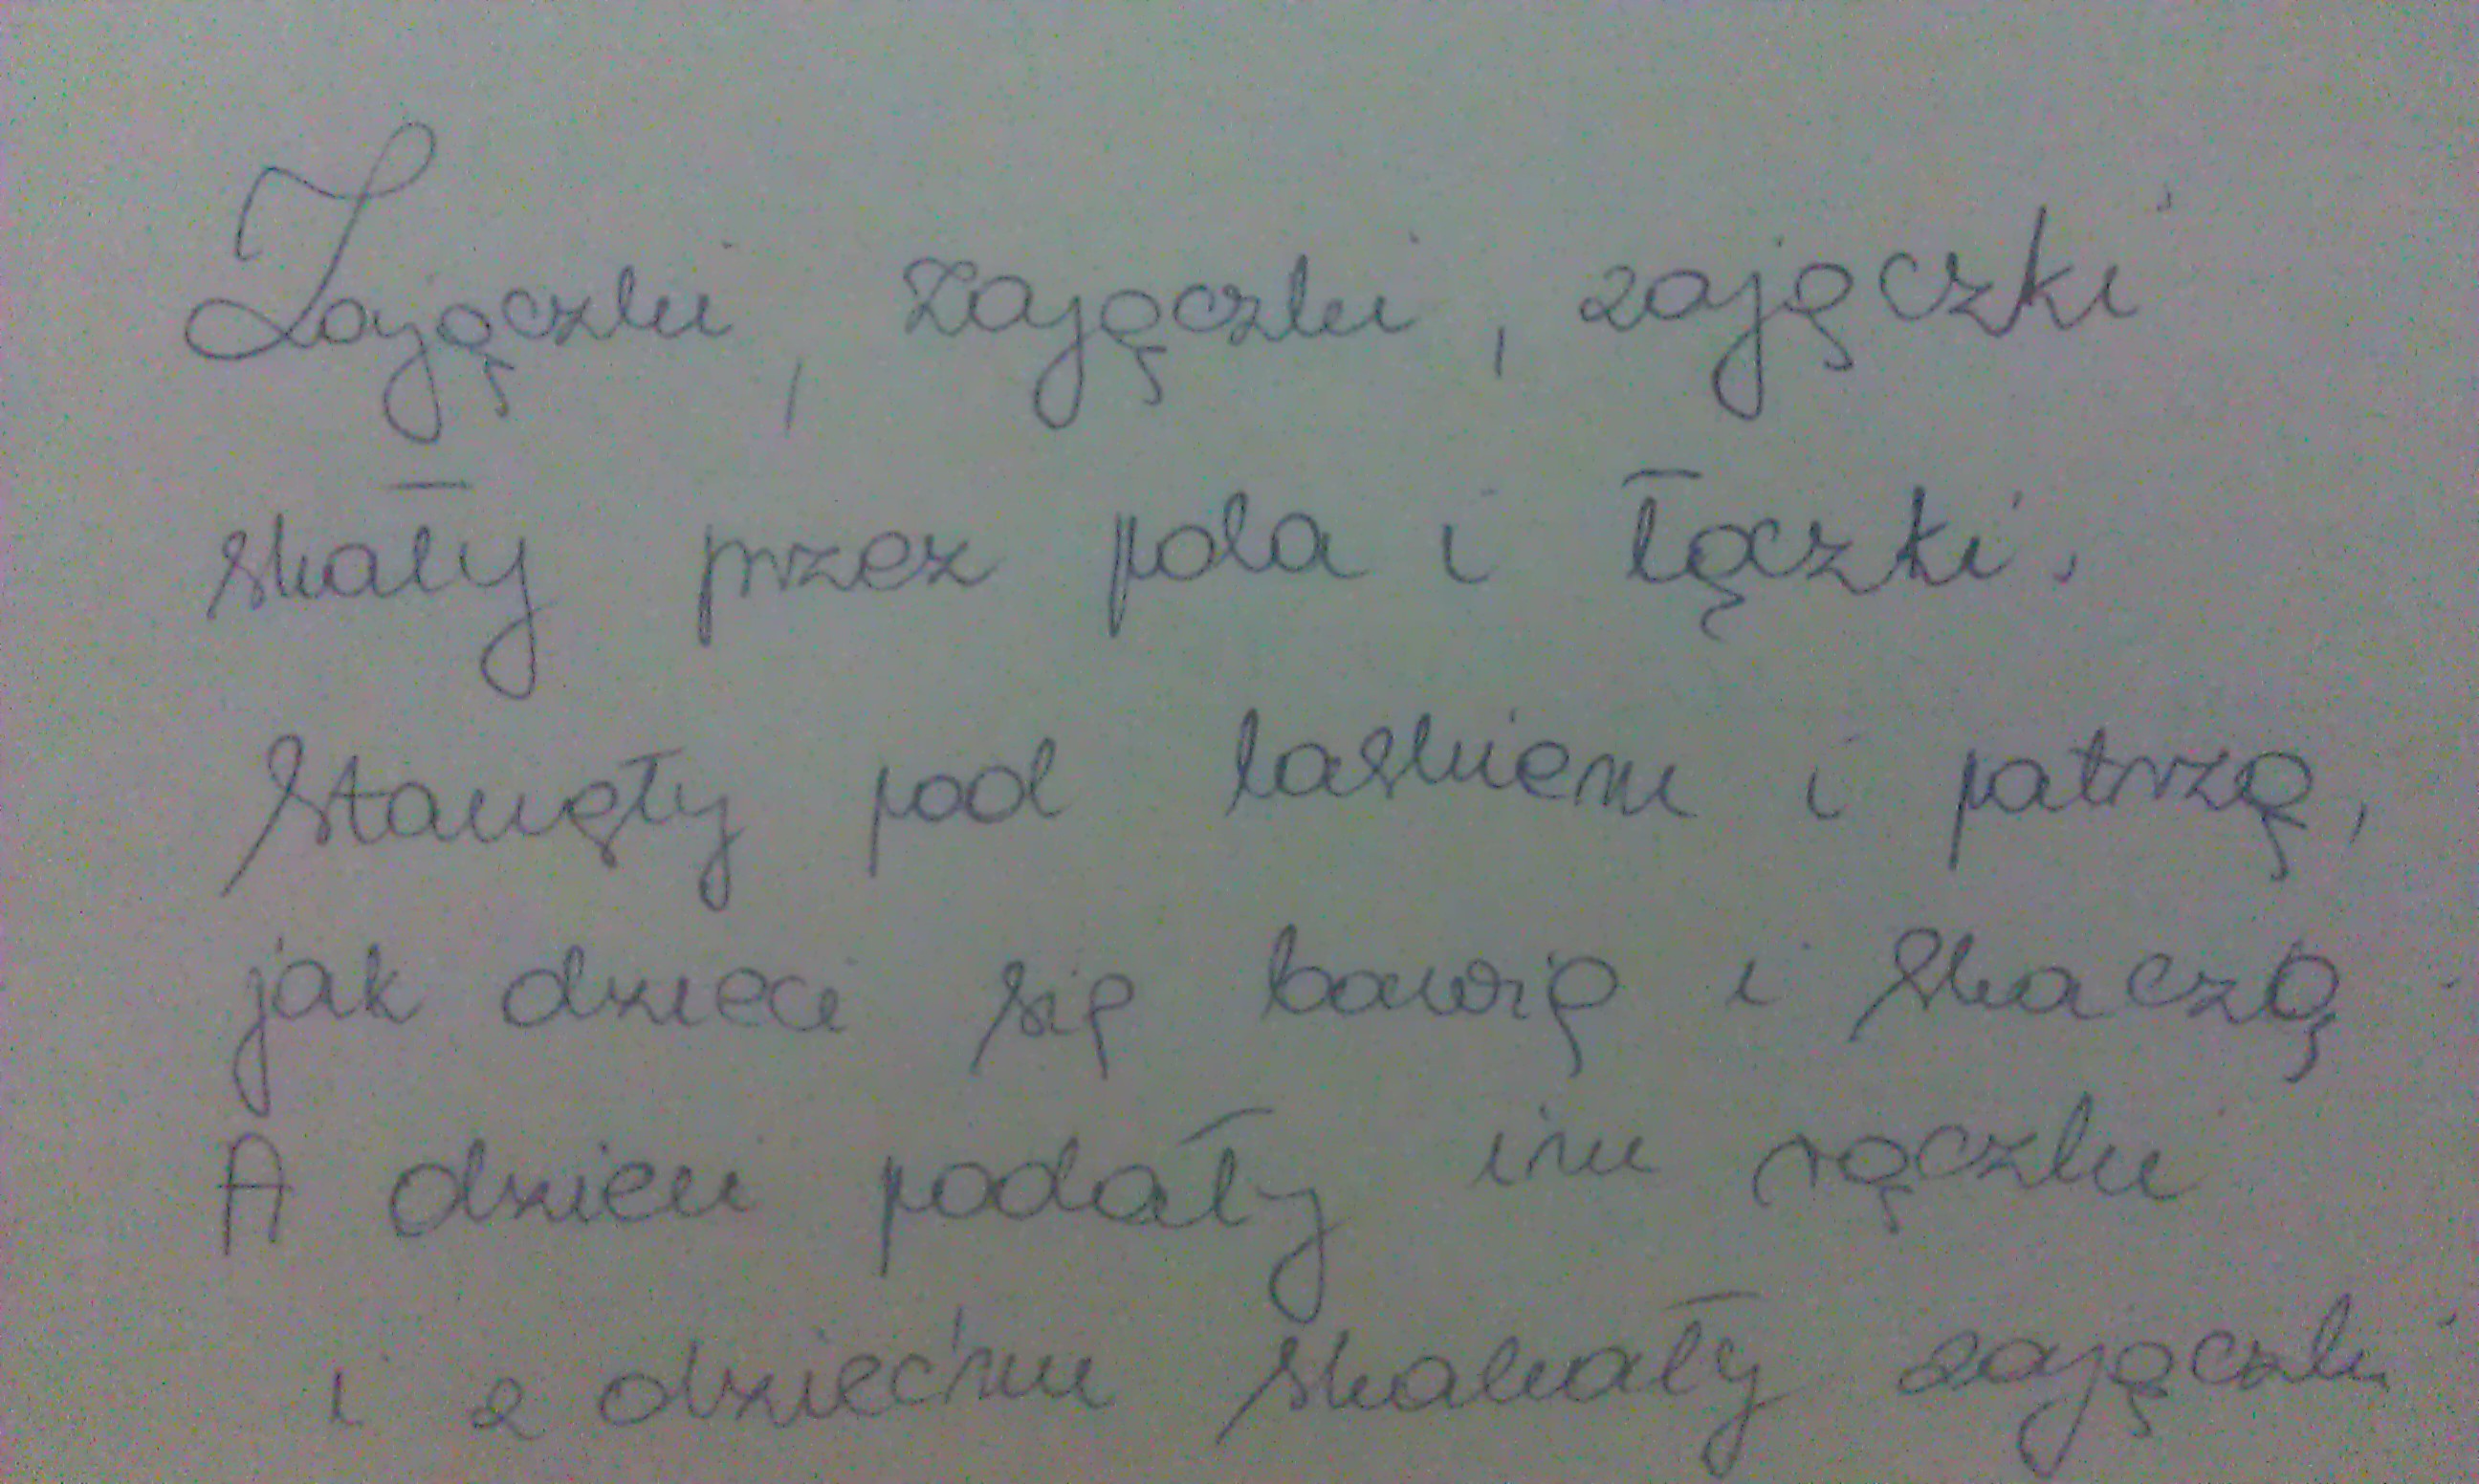 Zajączki, zajączki, zajączki
skały przez pola i łączki.
Stanęły pod laskiem i patrzą,
jak dzieci się bawią i skaczą.
A dzieci podały im rączki
i z dziećmi skakały zajączki